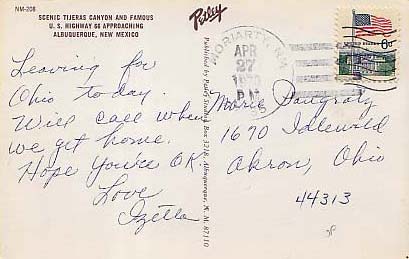 NM-208
SCENIC TIJERAS CANYON AND FAMOUS
U. S. HIGHWAY 66 APPROACHING
ALBUQUERQUE, NEW MEXICO
Leaving for
Ohio today.
Will call when
we get home.
Hope You're OK.
Love
Izetta
Petley
Published by Petley Studios, Box 3218, Albuquerque, N. M. 87110
MORIARTY, N.M.
APR
27
1970
P.M.
6¢
Marie
1690 Idlewild
Akron, Ohio
44313